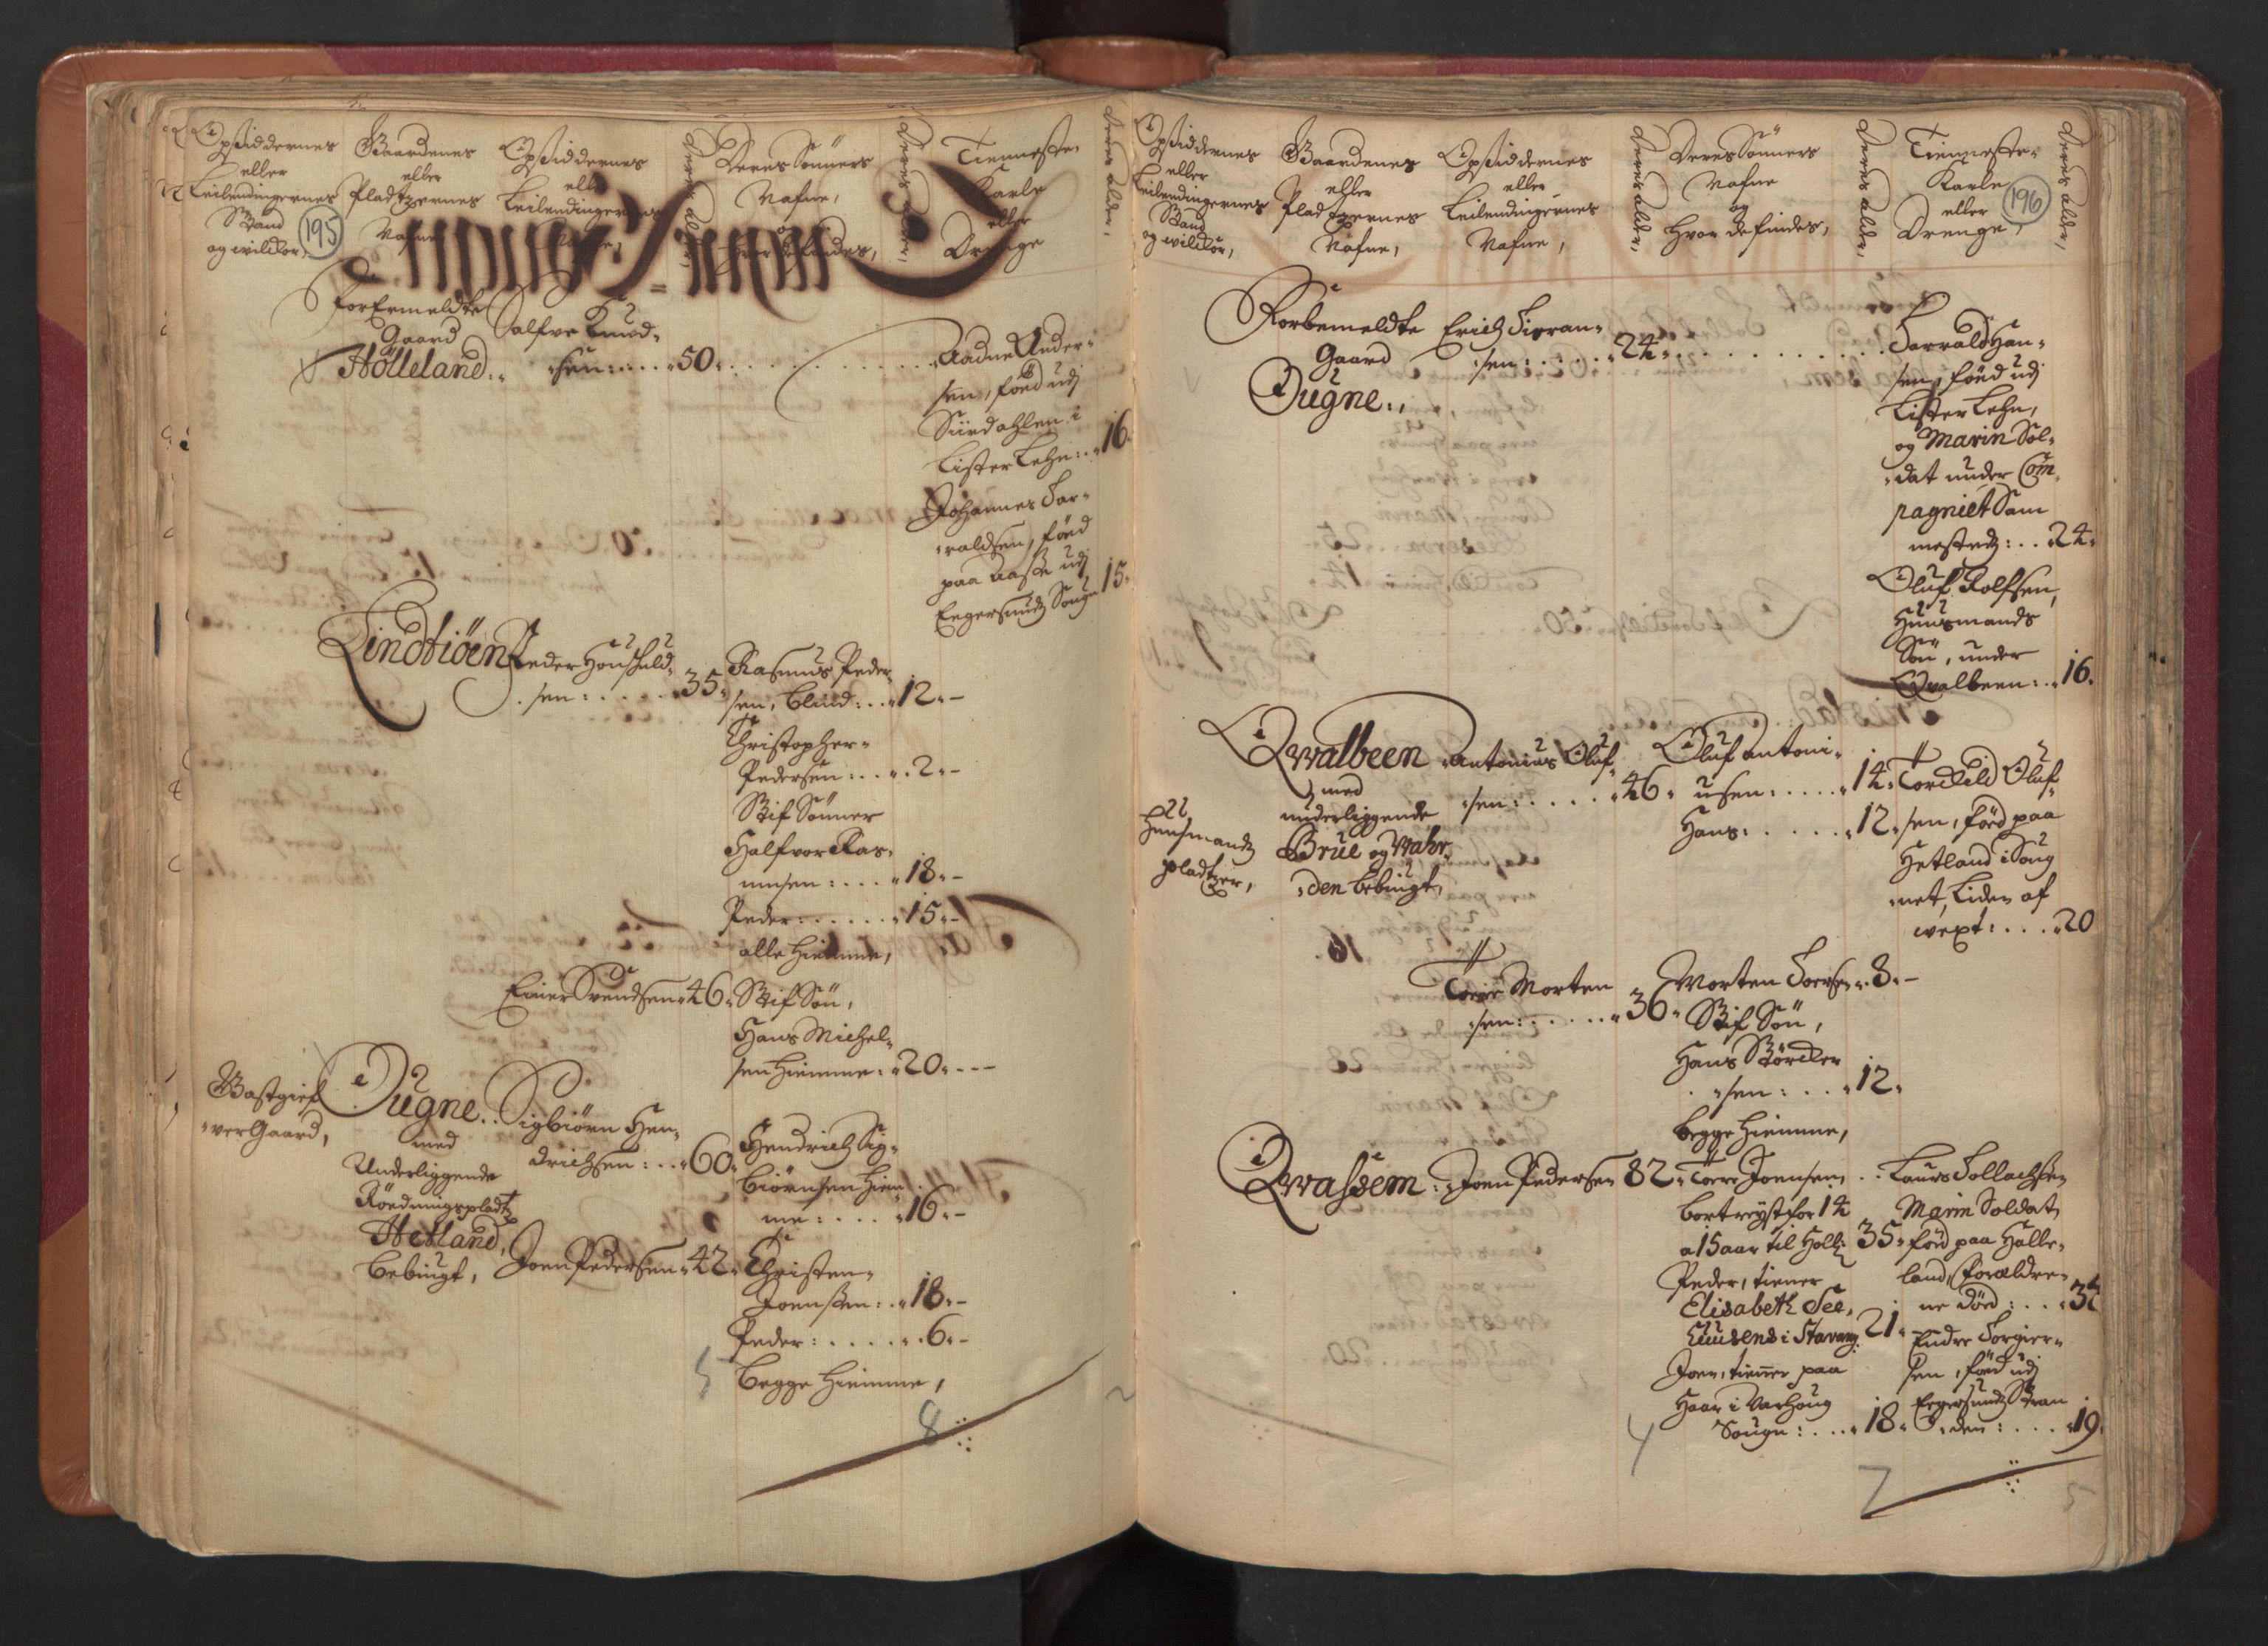 Opsiddernes
eller
Leilendingernes
Stand
og wilckor,
195
Gaardenes
eller
Pladtzernes
Nafne
Opsiddernes
eller
Leilendingernes
Deres alder,
Deres Sönners
Nafne,
og
Hvor de findes,
Deres alder,
Tienneste
Karle
eller
Drenge
Deres alder,
Forbemeldte
Gaard
Hölleland.
Salfve Knud-
sen: 50.
Aadne Ander-
sen, föed udj
Siirdahlen i
Lister Lehn: 16.
Johannes Tar-
raldsen, föed
paa Aasse udj
Eegersundz Sougn 15.
Lindtiöen
Peder Houschuld-
sen: 35.
Rasmus Peder-
sen, blind: 12.
Christopher
Pedersen: 2.
Stif Sönner
Halfvor Ras-
musen: 18.
Peder: 15.
alle hiemme,
Einer Svendsen 46.
Stif Sön,
Hans Michel-
sen hiemme: 20.
Gastgief-
ver Gaard,
Ougne.
med
Underliggende
Röedningspladtz
Hetland,
bebuugt,
Sigbiörn Hen-
drichsen: 60.
Hendrich Sig-
biörnsen hiem-
me: 16.
Joen Pedersen 42.
Christen
Joenssen: 18.
Peder: 6.
begge hiemme,
5
8
Opsiddernes
eller
Leilendingernes
Stand
og wilckor,
Gaardenes
eller
Pladtzernes
Nafne,
Opsiddernes
eller
Leilendingernes
Nafne,
Deres alder,
Deres Sönners
Nafne
og
Hvor de findes,
Deres alder,
Tienneste
Karle
eller
Drenge,
196
Deres alder,
Forbemeldte
Gaard
Ougne.,
Erich
sen: 24.
Tarrald Han-
sen, föed udj
Lister Lehn,
og Marin Sol-
dat under Com-
pagniet Sam-
mestedz: 24.
Oluf Rolfsen,
Huusmands
Sön, under
Qvalbeen: 16.
Qvalbeen
med
underliggende
Brue og Wahr-
den bebuugt,
2
Huusmandz
pladtzer,
Antonius Oluf-
sen: 46.
Oluf Antoni-
usen: 14.
Hans: 12.
Torckild Oluf-
sen, föed paa
Hetland i Soug-
net, liden af
wext: 20
Torre Morten
sen: 36.
Morten Torrsen 8.
Stif Sön,
Hans Börcker
sen: 12.
begge hiemme,
Qvassem.
Joen Pedersen 82.
Torre Joensen,
bortreyst for 14
a 15 aar til Holl: 35.
Peder, tiener
Elisabeth See,
i Stavang: 21.
Joen, tiener paa
Haar i Varhoug
Sougn: 18.
Laurs Tollachsen
Marin Soldat,
föed paa Hölle-
land, forældre-
ne död: 34
Endre Torgier-
sen, föed udj
Eegersundz Stran-
den: 19.
4
7
5